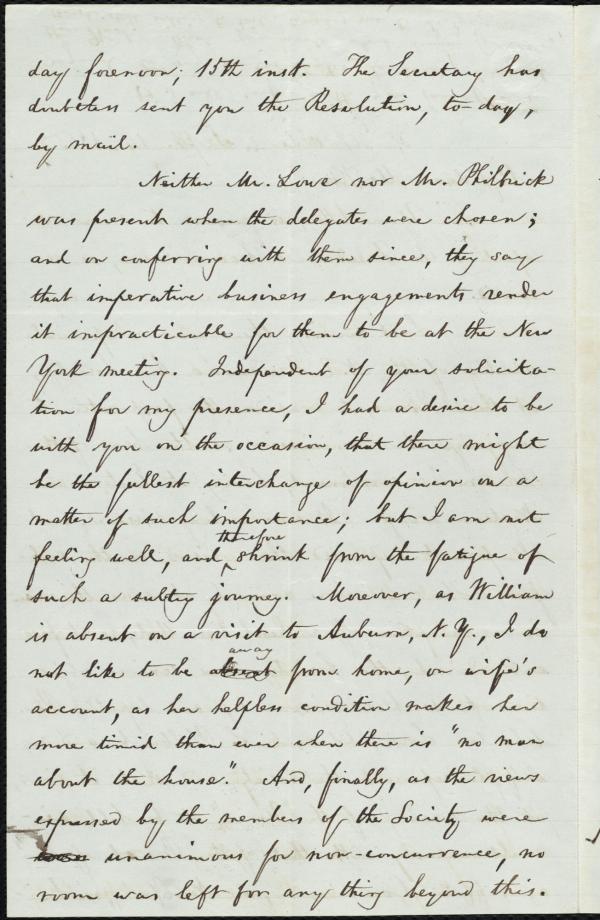 day forenoon, 15th inst. The Secretary has
doubtless sent you the Resolution, to-day,
by mail.
Neither Mr. Lowe nor Mr. Philbrick
was present when the delegates were chosen;
and on conferring with them since, they say
that imperative business engagements render
it impracticable for them to be at the New
York meeting. Independent of your solicita-
tion for my presence, I had a desire to be
with you on the occasion, that there might
be the fullest interchange of opinion on a
matter of such importance; but I am not
feeling well, and therefore shrink from the fatigue of
such a sultry journey. Moreover, as William
is absent on a visit to Auburn, N. Y., I do
not like to be absent away from home, on wife's
account, as her helpless condition makes her
more timid than ever when there is "no man
about the house." And, finally, as the views
expressed by the members of the Society were
unanimous for non-concurrence, no
room was left for any thing beyond this.